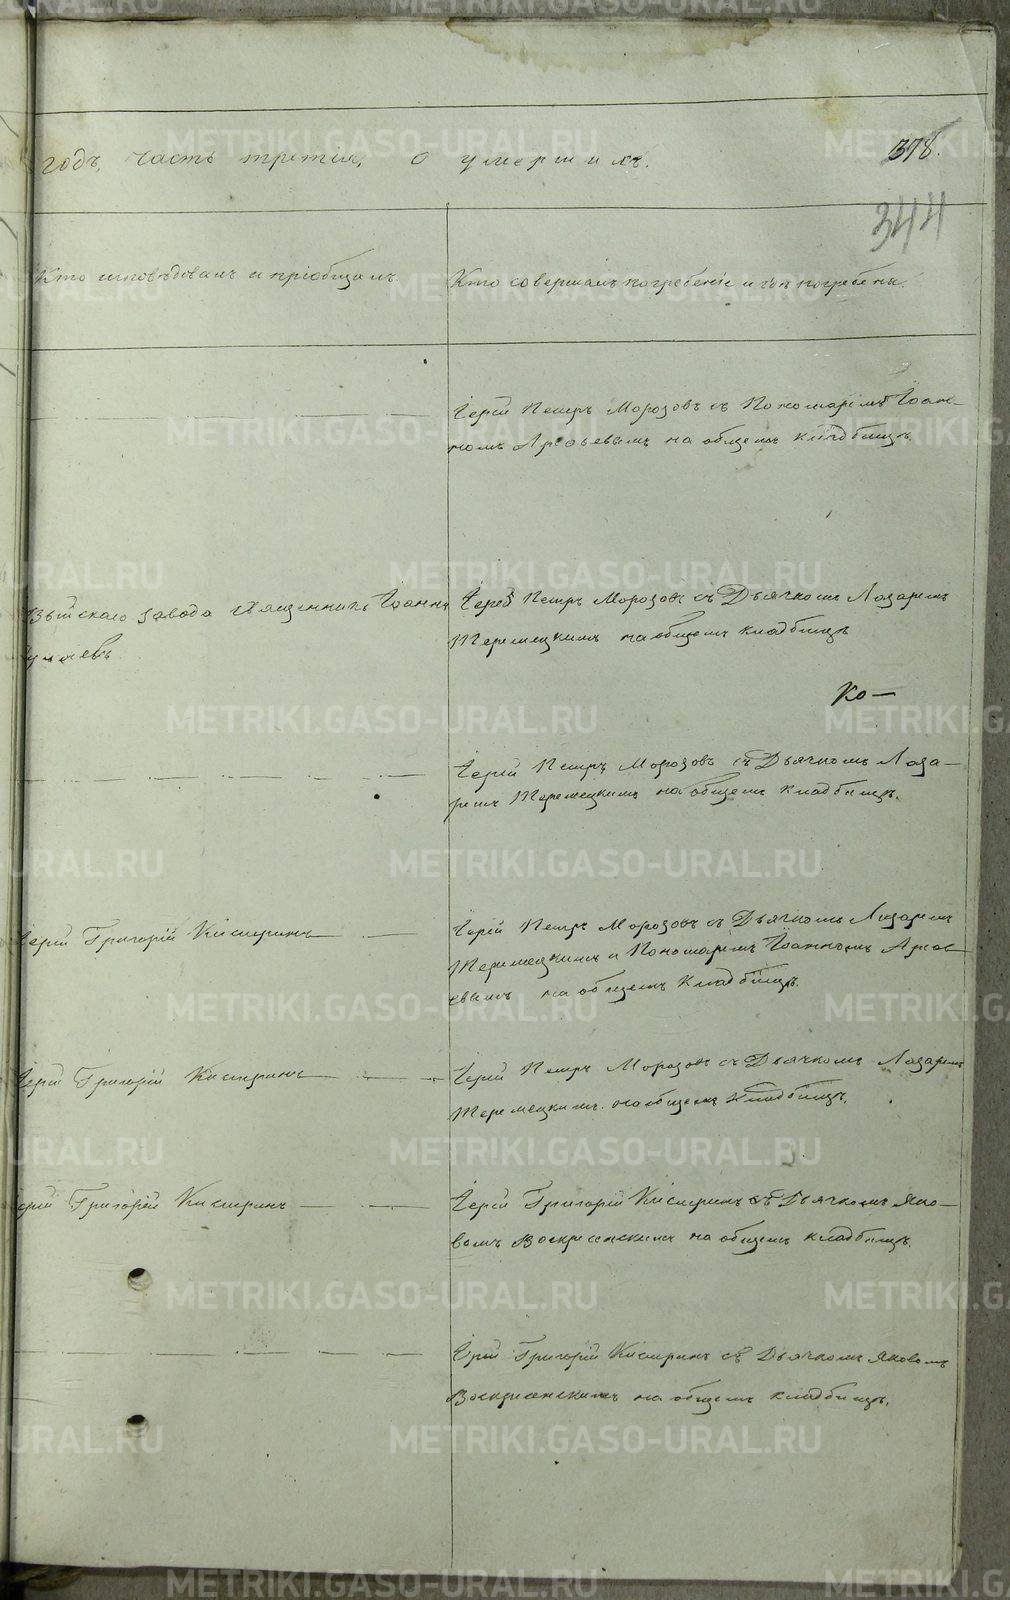 годъ, часть третія, о умершихъ.
378.
344
Кто исповѣдовалъ и пріобщалъ.
Кто совершалъ погребеніе и гдѣ погребены.
Іерей Петръ Морозовъ съ Пономаремъ Іоан-
номъ Арсеьевымъ на общемъ кладбищѣ.
Выйскаго завода Священникъ Іоаннъ
Іерей Петръ Морозовъ съ Дьячкомъ Лазаремъ
Теремецкимъ на общемъ кладбищѣ
Ко-
Іерей Петръ Морозовъ съ Дьячкомъ Лаза-
ремъ Теремецкимъ на общемъ кладбищѣ.
Іерей Григорій Кистринъ
Іерей Петръ Морозовъ съ Дьячкомъ Лазаремъ
Теремецкимъ и Пономаремъ Іоанномъ Арсе-
евымъ на общемъ кладбищѣ.
Іерей Григорій Кистринъ
Іерей Петръ Морозовъ съ Дьячкомъ Лазаремъ
Теремецкимъ на общемъ кладбищѣ.
Іерей Григорій Кистринъ
Іерей Григорій Кистринъ съ Дьячкомъ Яко-
вомъ Воскресенскимъ на общемъ кладбищѣ.
Іерей Григорій Кистринъ съ Дьячкомъ Яковомъ
Воскресенскимъ на общемъ кладбищѣ.
METRIKI.GASO-URAL.RU